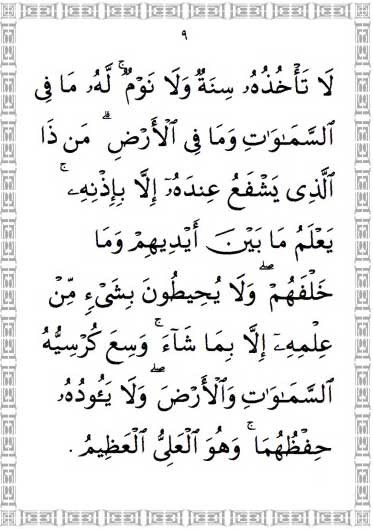 ٩
لَا تَأْخُذُهُۥ سِنَةٌ وَلَا نَوْمٌ ۚ لَّهُۥ مَا فِى
السَّمَـٰوَٰتِ وَمَا فِى ٱلْأَرْضِ ۗ مَن ذَا
ٱلَّذِى يَشْفَعُ عِندَهُۥٓ إِلَّا بِإِذْنِهِۦ ۚ
يَعْلَمُ مَا بَيْنَ أَيْدِيهِمْ وَمَا
خَلْفَهُمْ ۖ وَلَا يُحِيطُونَ بِشَىْءٍ مِّنْ
عِلْمِهِۦٓ إِلَّا بِمَا شَآءَ ۚ وَسِعَ كُرْسِيُّهُ
السَّمَـٰوَٰتِ وَٱلْأَرْضَ ۖ وَلَا يَـُٔودُهُۥ
حِفْظُهُمَا ۚ وَهُوَ ٱلْعَلِىُّ ٱلْعَظِيمُ .